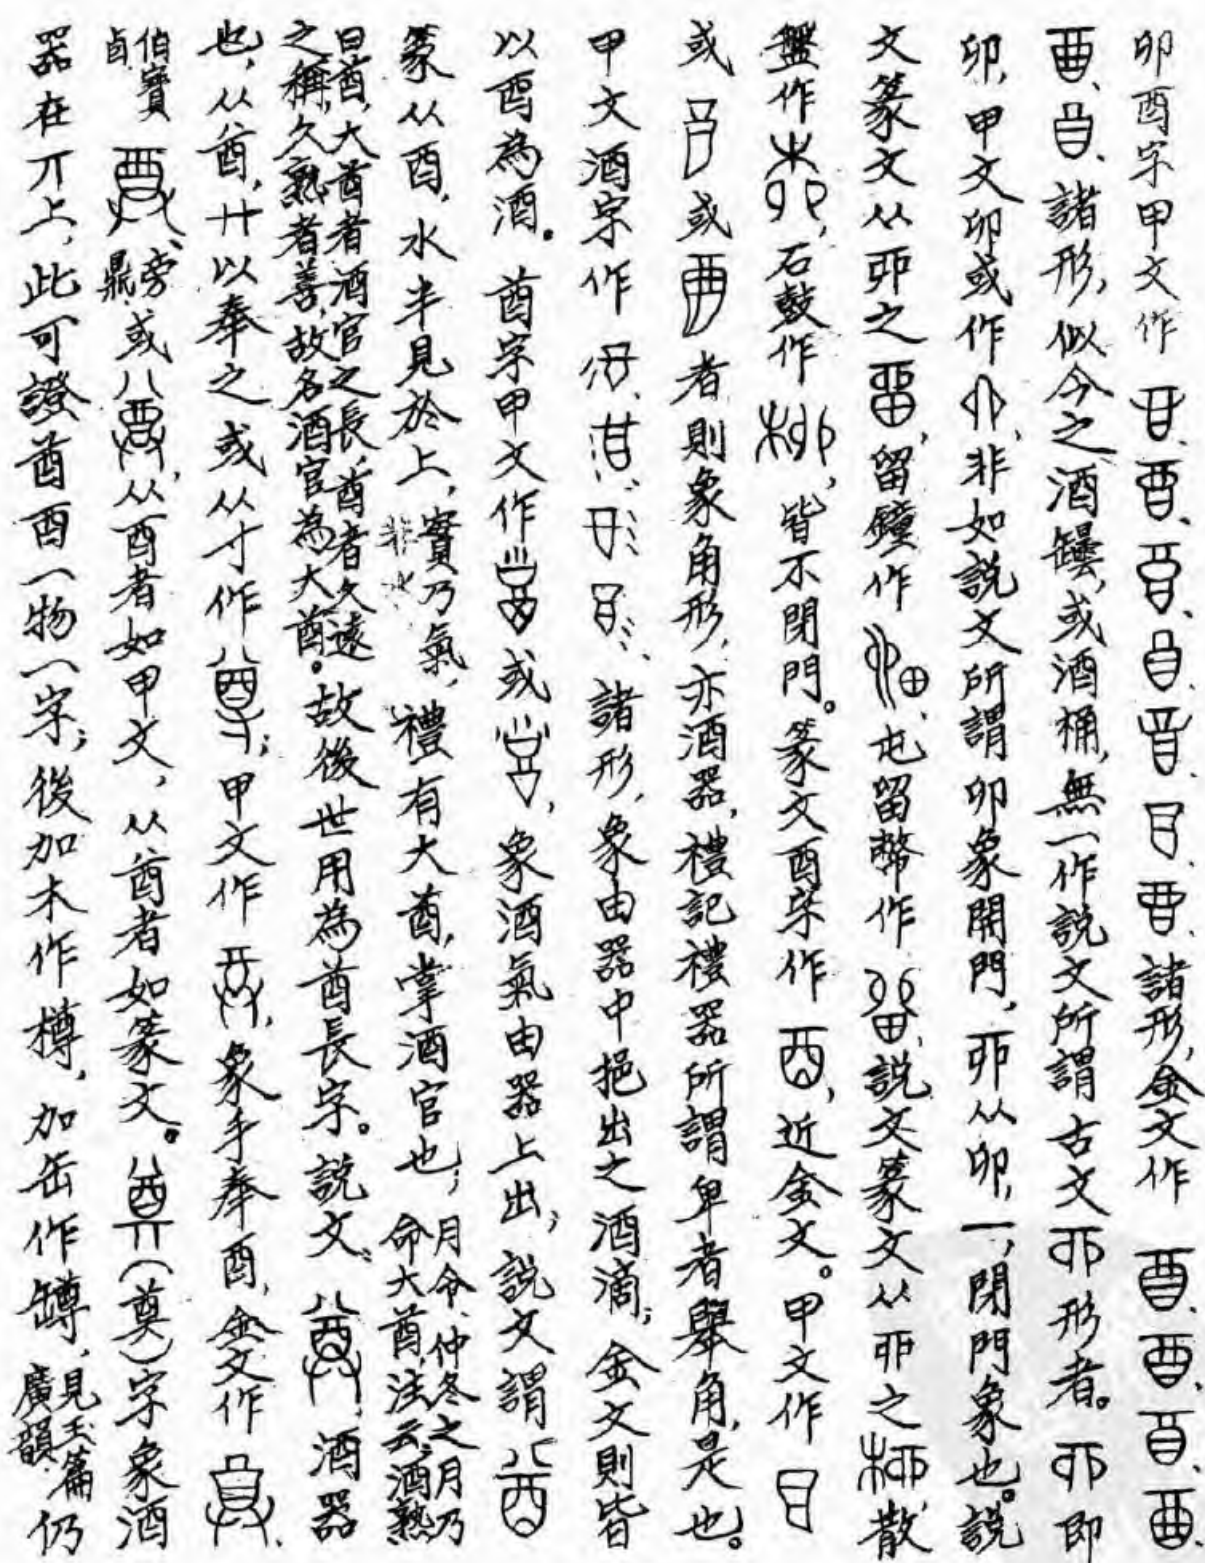 卯酉字甲文作諸形，金文作
諸形，似今之酒罎，或酒桶，無一作說文所謂古文丣形者。丣即
卯，甲文卯或作，非如說文所謂卯象開門，丣从卯，一，閉門象也。說
文篆文从丣之，留鐘作，屯留幣作，說文篆文从丣之，散
盤作，石鼓作，皆不閉門。篆文酉字作，近金文。甲文作
或或者則象角形，亦酒器，禮記禮器所謂卑者舉角，是也。
甲文酒字作諸形，象由器中挹出之酒滴；金文則皆
以酉為酒。酋字甲文作或，象酒氣由器上出；說文謂
篆从酉，水半見於上，非水實乃氣，禮有大酋，掌酒官也；月令、仲冬之月乃命大酋，注云：酒熟
曰酋，大酋者酒官之長，酋者久遠之稱，久熟者善，故名酒官為大酋。故後世用為酋長字。說文：，酒器
也，从酋，廾以奉之或从寸作；甲文作，象手奉酉，金文作
伯寶卣旁鼎，或，从酉者如甲文，从酋者如篆文。（奠）字象酒
器在丌上，此可證酋酉一物一字；後加木作樽，加缶作罇，見玉篇廣韻仍